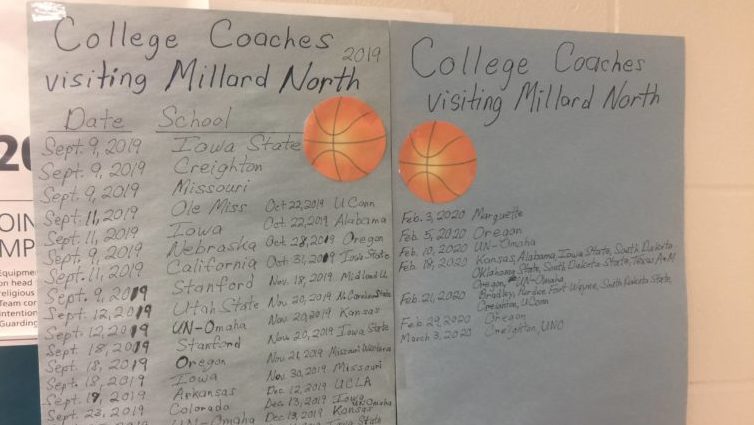 College Coaches 2019
visiting Millard North
Date School
Sept. 9, 2019 Iowa State
Sept. 9, 2019 Creighton
Sept. 9, 2019 Missouri
Sept. 11, 2019 Ole Miss
Sept. 11, 2019 Iowa
Sept. 9, 2019 Nebraska
Sept. 11, 2019 California
Sept. 9, 2019 Stanford
Sept. 12, 2019 Utah State
Sept. 12, 2019 UN-Omaha
Sept. 18, 2019 Stanford
Sept. 18, 2019 Oregon
Sept. 18, 2019 Iowa
Sept. 19, 2019 Arkansas
Sept. 23, 2019 Colorado
UN-Omaha
Oct 22, 2019 UConn
Oct. 22, 2019 Alabama
Oct. 28, 2019 Oregon
Oct. 31, 2019 Iowa State
Nov. 18, 2019 Midland U
Nov. 20, 2019
Nov. 20, 2019 Kansas
Nov. 20, 2019 Iowa State
Nov. 21, 2019 Missouri Western
Nov. 30, 2019 Missouri
Dec. 12, 2019 UCLA
Dec. 13, 2019 Iowa UN Omaha
Dec. 13, 2019 Kansas
Iowa State
College Coaches
visiting Millard North
Feb. 3, 2020 Marquette
Feb. 5, 2020 Oregon
Feb. 10, 2020 UN-Omaha
Feb. 18, 2020 Kansas, Alabama, Iowa State, South Dakota
Oklahoma State, South Dakota State, Texas A+M
Oregon, UN-Omaha
Feb. 21, 2020 Bradley, Purdue, Fort Wayne, South Dakota State,
Creighton, UConn
Feb 29, 2020 Oregon
March 3, 2020 Creighton, UNO
20
OIN
MP
Equipme
on head
religious
Team con
intention
Guarding